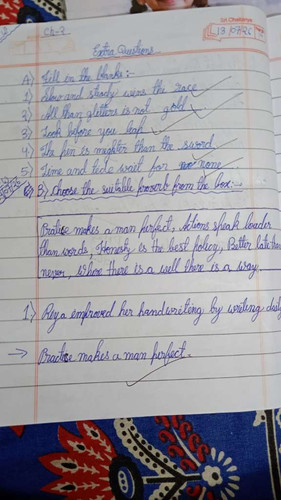 Ch-2
Extra Questions
A) Fill in the blanks:-
1) Slow and steady wins the race
2) All than glitters is not gold
3) Look before you leap
4) The pen is mightier than the sword
5) Time and tide wait for none
B) Choose the suitable proverb from the box:-
Pratise makes a man perfect, Actions speak louder
than words, Honesty is the best policy, Better late than
never, Where there is a will there is a way
1) Reya emproved her handwriting by writing daily
→ Practise makes a man perfect.